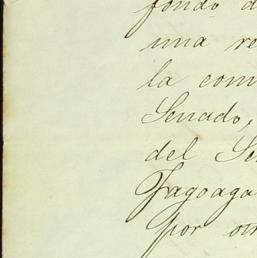 fondo d
una re
la com
Senado,
del Se
Fagoaga
por o